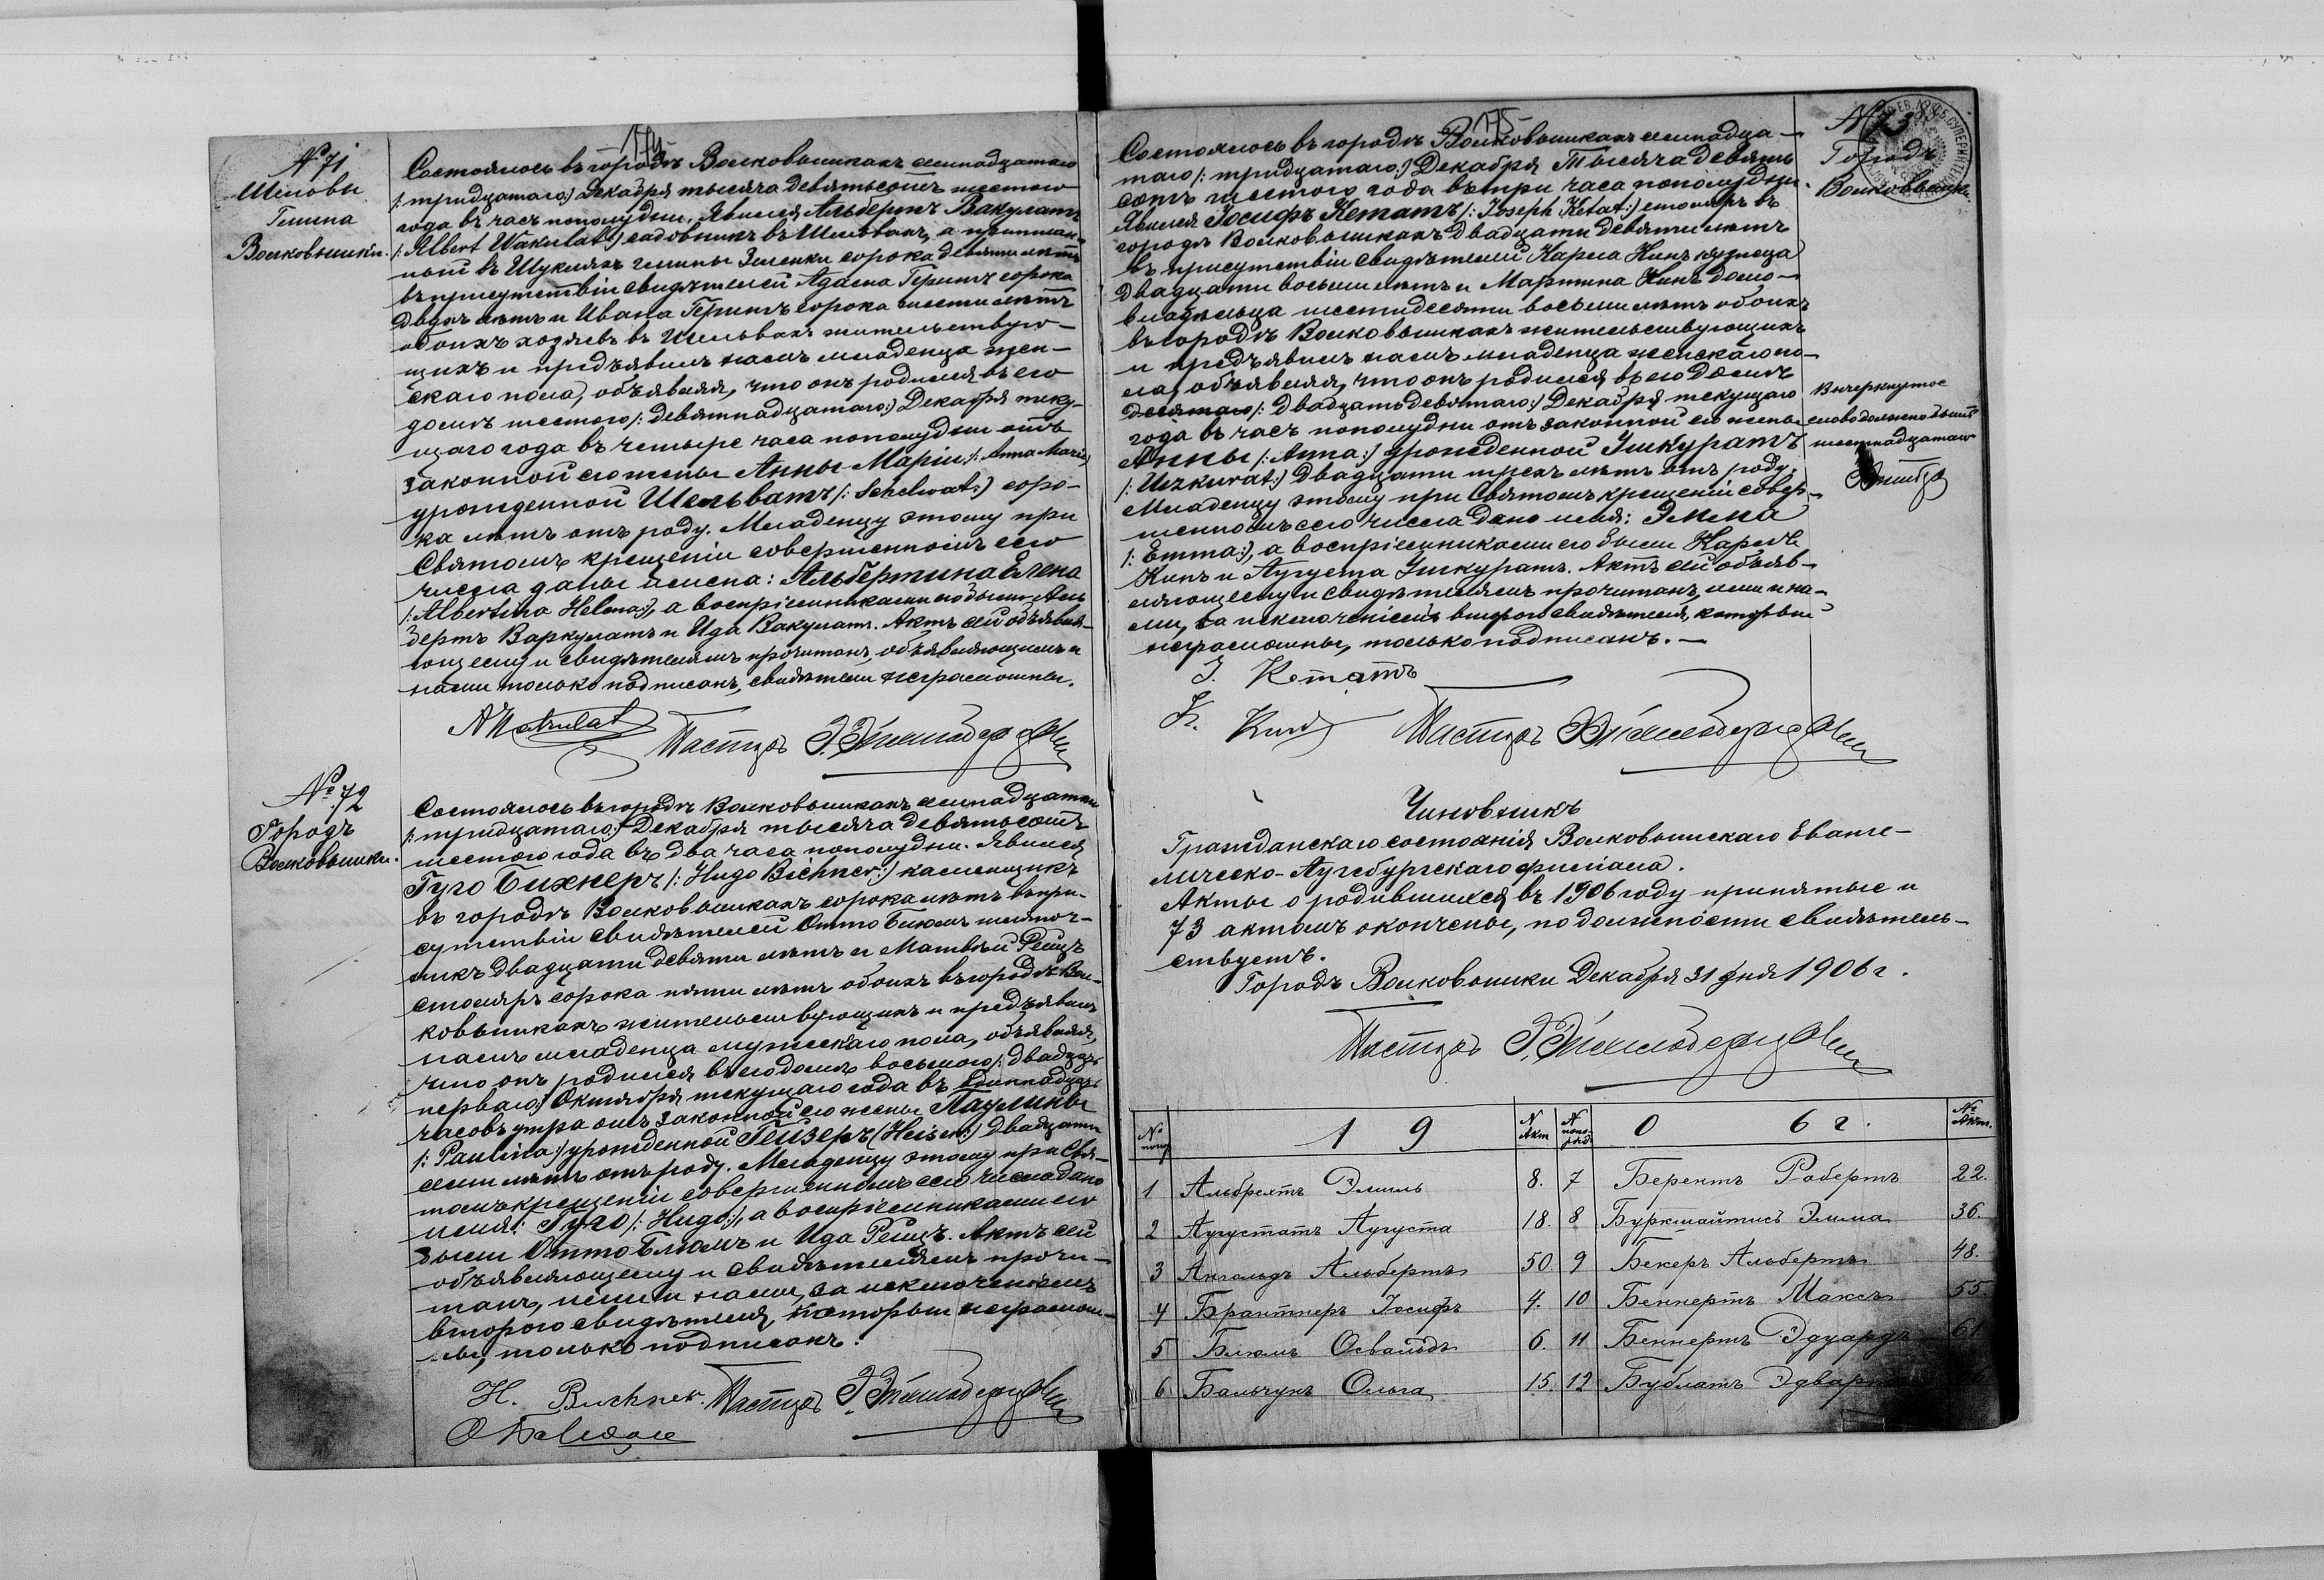 174
№ 71
Шельвы
Гмина
Волковышки.
Состоялось въ городѣ Волковышкахъ семнадцатаго
/: тридцатаго:/ Декабря тысяча девятьсотъ шестого
года въ часъ пополудни. Явился Альбертъ Вакулатъ
/: Albert Wakulat:/ садовникъ въ Шельвахъ, а приписан-
ный въ Шукляхъ гмины Зеленки сорока девяти лѣтъ
въ присутствіи свидѣтелей Адама Геритъ сорока
двухъ лѣтъ и Ивана Геритъ сорока шести лѣтъ
обоихъ хозяевъ въ Шельвахъ жительствую-
щихъ и предъявилъ намъ младенца жен-
скаго пола, объявляя, что онъ родился въ его
домѣ шестого /: девятнадцатаго:/ Декабря теку-
щаго года въ четыре часа пополудни отъ
законной его жены Анны Маріи /: Anna Maria:/
урожденной Шельватъ /: Schelwat:/ соро-
ка лѣтъ отъ роду. Младенцу этому при
Святомъ крещеніи совершенномъ сего
числа даны имена: Альбертина Елена
/: Albertina Helena:/, а воспріемниками его были Аль
бертъ Варкулатъ и Ида Вакулатъ. Актъ сей объявля-
ющему и свидѣтелямъ прочитанъ, объявляющимъ и
нами только подписанъ, свидѣтели неграмотны.
A Wakulat Пасторъ
№ 72
Городъ
Волковышки.
Состоялось въ городѣ Волковышкахъ семнадцатаго
/: тридцатаго:/ Декабря тысяча девятьсотъ
шестого года въ два часа пополудни. Явился
Гуго Бихнеръ /: Hugo Bichner:/ каменщикъ
въ городѣ Волковышкахъ сорока лѣтъ въ при-
сутствіи свидѣтелей Отто Блюмъ шляпоч-
никъ двадцати девяти лѣтъ и Матвѣй Рейцъ
столяръ сорока пяти лѣтъ обоихъ въ городѣ Вол-
ковышкахъ жительствующихъ и предъявилъ
намъ младенца мужескаго пола, объявляя,
что онъ родился въ его домѣ восьмого /: двадцать
перваго:/ Октября текущаго года въ одиннадцать
часовъ утра отъ законной его жены Паулины
/: Paulina:/ урожденной Гейзеръ (Heiser:) двадцати
семи лѣтъ отъ роду. Младенцу этому при Свя-
томъ крещеніи совершенномъ сего числа дано
имя: Гуго /: Hugo:/, а воспріемниками его
были Отто Блюмъ и Ида Рейцъ. Актъ сей
объявляющему и свидѣтелямъ прочи-
танъ, ими и нами, за исключеніемъ
второго свидѣтеля, который неграмот-
ны, только подписанъ.
H. Bichner. Пасторъ
175
№ 73
Городъ
Волковышки.
Состоялось въ городѣ Волковышкахъ семнадца-
таго /: тридцатаго:/ Декабря Тысяча девять
сотъ шестого года въ три часа пополудни.
Явился Іосифъ Кетатъ /: Joseph Ketat:/ столяръ въ
городѣ Волковышкахъ двадцати девяти лѣтъ
въ присутствіи свидѣтелей Карла Кинъ кузнеца
двадцати восьми лѣтъ и Мартина Кинъ домо-
владѣльца шестидесяти восьми лѣтъ обоихъ
въ городѣ Волковышкахъ жительствующихъ
и предъявилъ намъ младенца женскаго по-
ла, объявляя, что онъ родился въ его домѣ
десятаго /: двадцать девятаго:/ Декабря текущаго
года въ часъ пополудни отъ законной его жены
Анны /: Anna:/ урожденной Ушкуратъ
/: Uszkurat:/ двадцати трехъ лѣтъ отъ роду.
Младенцу этому при Святомъ крещеніи совер-
шенномъ сего числа дано имя: Эмма
/: Emma:/, а воспріемниками его были Карлъ
Кинъ и Аугуста Ушкуратъ. Актъ сей объяв-
ляющему и свидѣтелямъ прочитанъ, ими и на-
ми, за исключеніемъ второго свидѣтеля, который
неграмотны, только подписанъ.—
Вычеркнутое
слово должно быть
шестнадцатаго
І. Кетатъ
К. Кинъ Пасторъ
Чиновникъ
Гражданскаго состоянія Волковышскаго Еванге-
лическо-Аугсбургскаго филіала.
Акты о родившихся въ 1906 году принятые и
73 актомъ окончены, по должности свидѣтель-
ствуетъ.
Городъ Волковышки Декабря 31 дня 1906 г.
Пасторъ
№ 19 № Акт № 06 г. № Акт.
1 Альбрехтъ Эмиль 8. 7 Берентъ Робертъ 22.
2 Аугустатъ Аугуста 18. 8 Буркшайтисъ Эмма 36.
3 Ангольдъ Альбертъ 50. 9 Бекеръ Альбертъ 48.
4 Брантнеръ Іосифъ 4. 10 Беннертъ Максъ 55.
5 Блюмъ Освальдъ 6. 11 Беннертъ Эдуардъ 61
6 Бальчунъ Ольга 15. 12 Бублатъ Эдвардъ